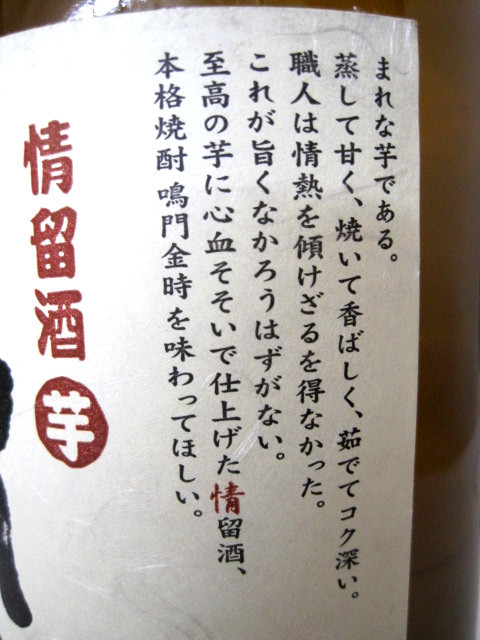 まれな芋である。
蒸して甘く、焼いて香ばしく、茹でてコク深い。
職人は情熱を傾けざるを得なかった。
これが旨くなかろうはずがない。
至高の芋に心血そそいで仕上げた情留酒、
本格焼酎鳴門金時を味わってほしい。
情留酒芋